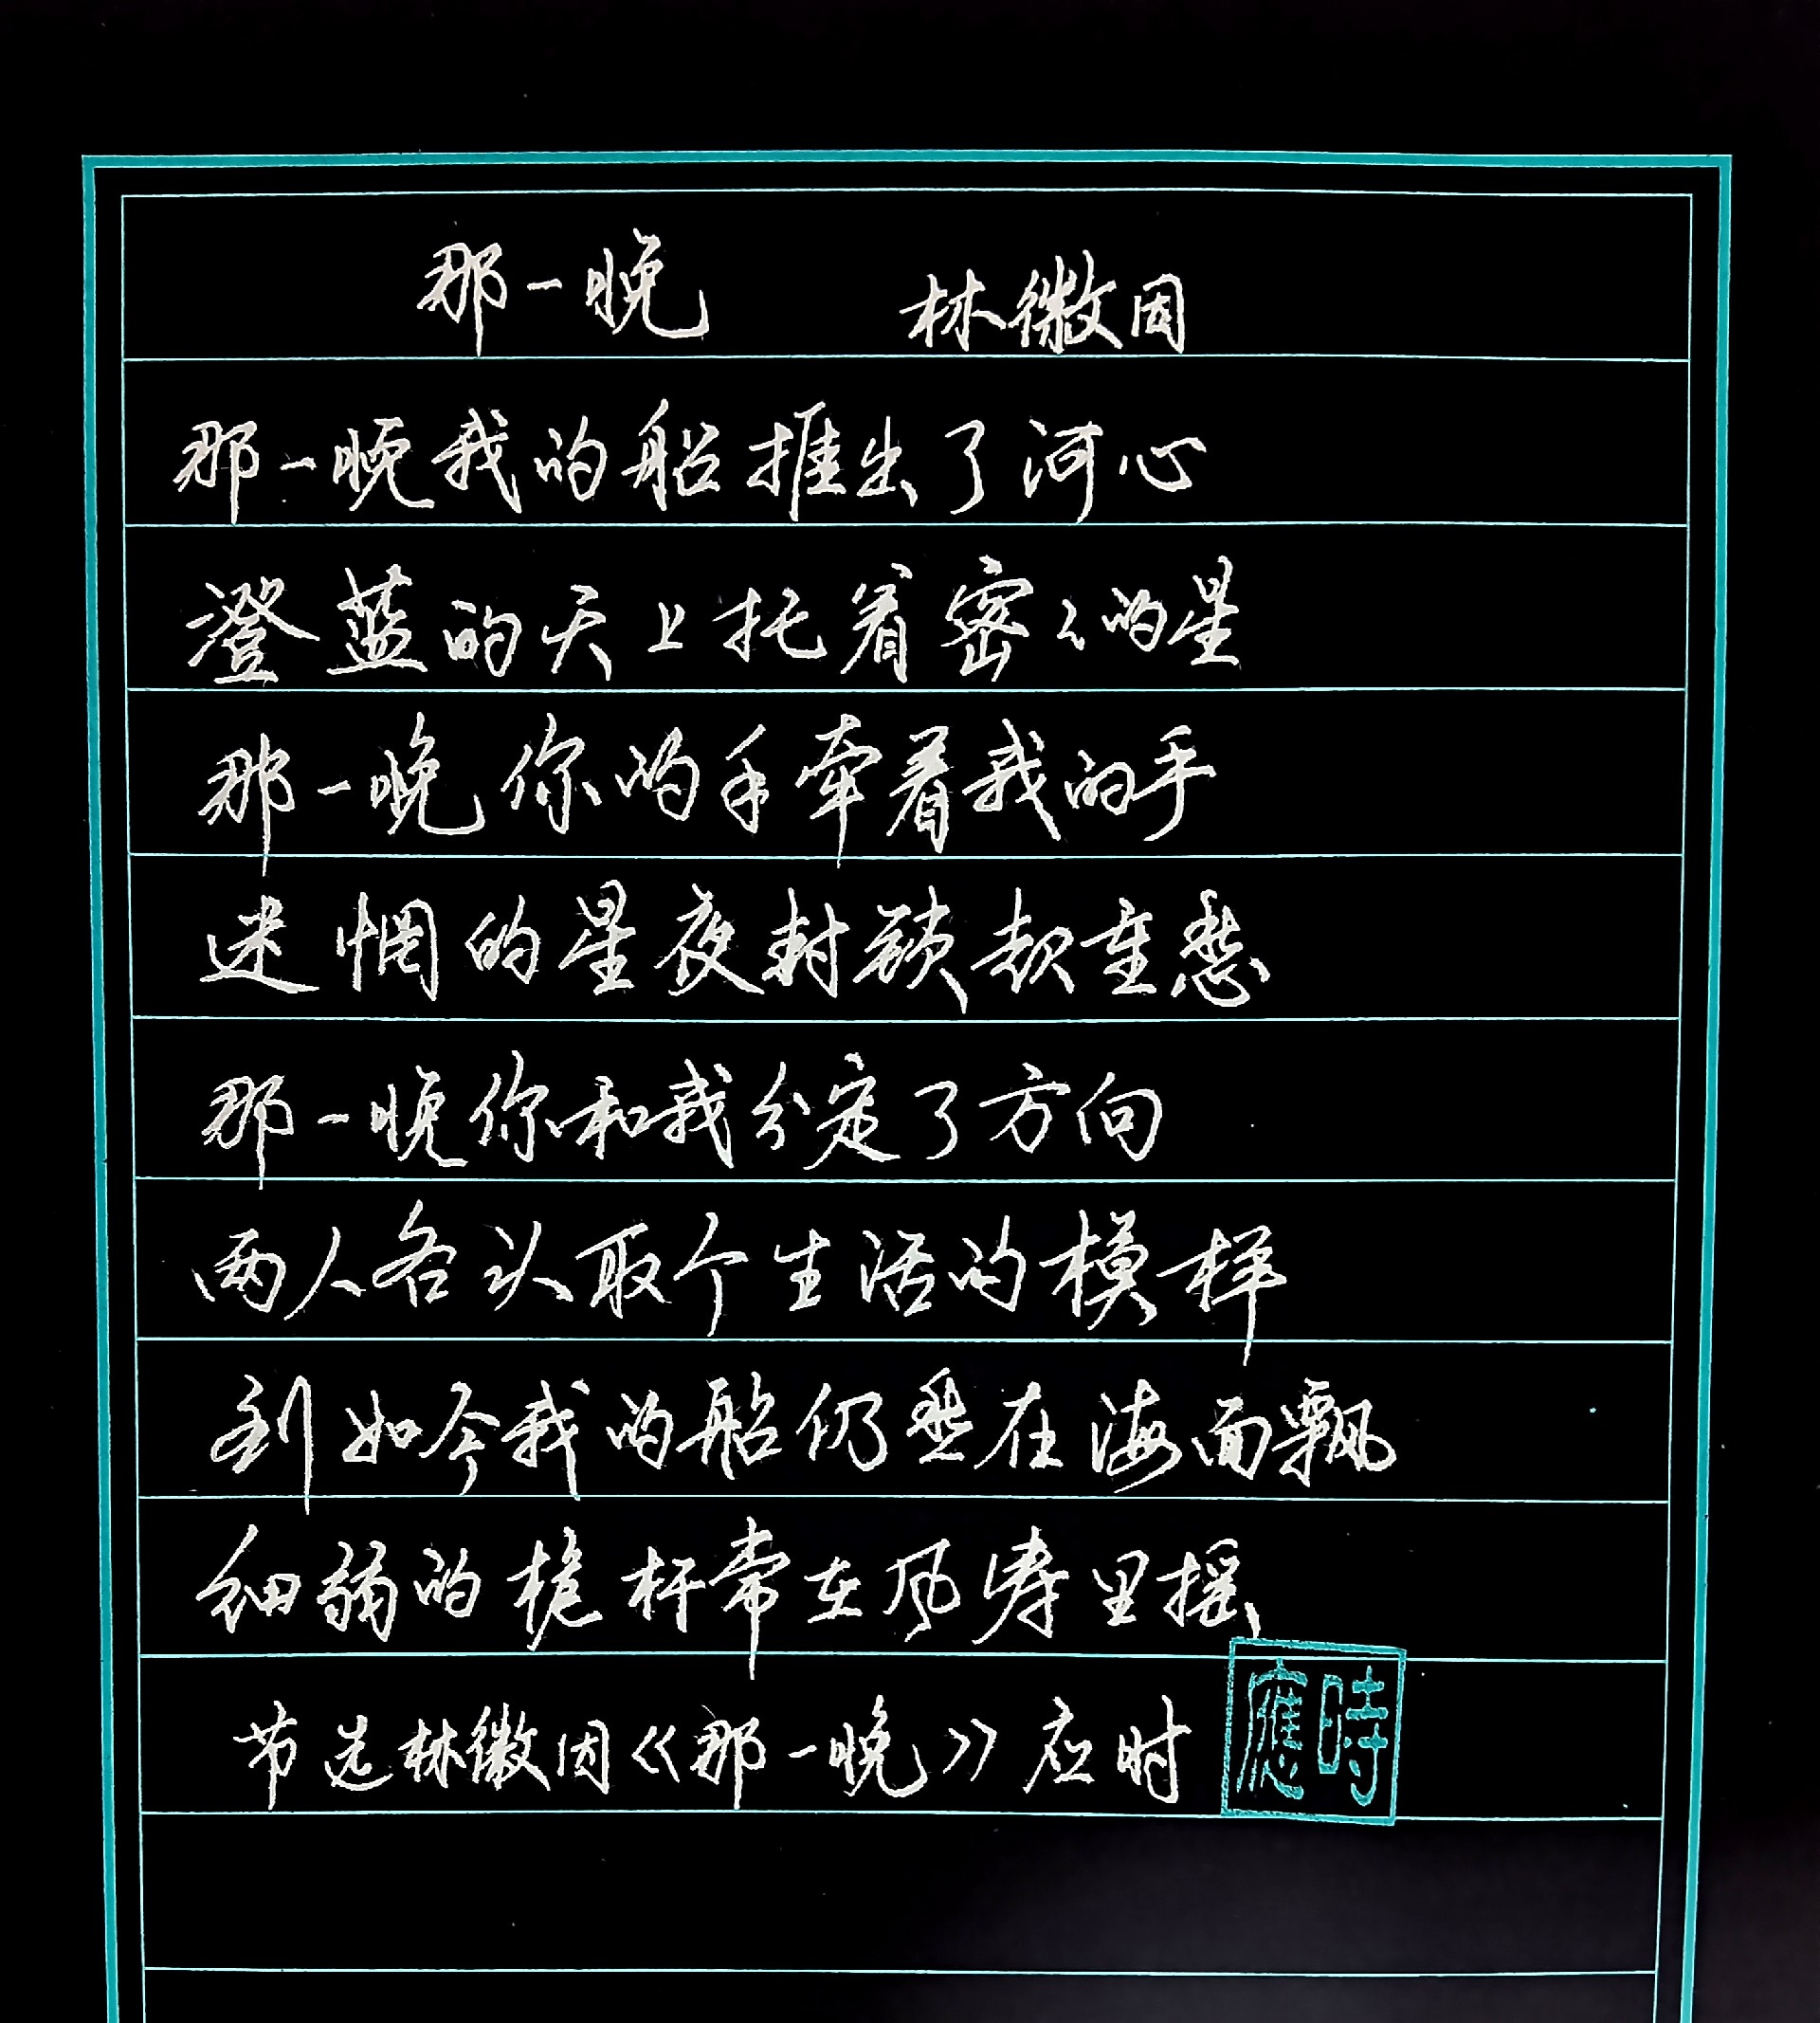 那一晚 林徽因
那一晚我的船推出了河心
澄蓝的天上托着密々的星
那一晚你的手牵着我的手
迷惘的星夜封锁起重愁
那一晚你和我分定了方向
两人各认取个生活的模样
到如今我的船仍然在海面飘
细弱的桅杆常在风涛里摇
节选林徽因《那一晚》应时
應時